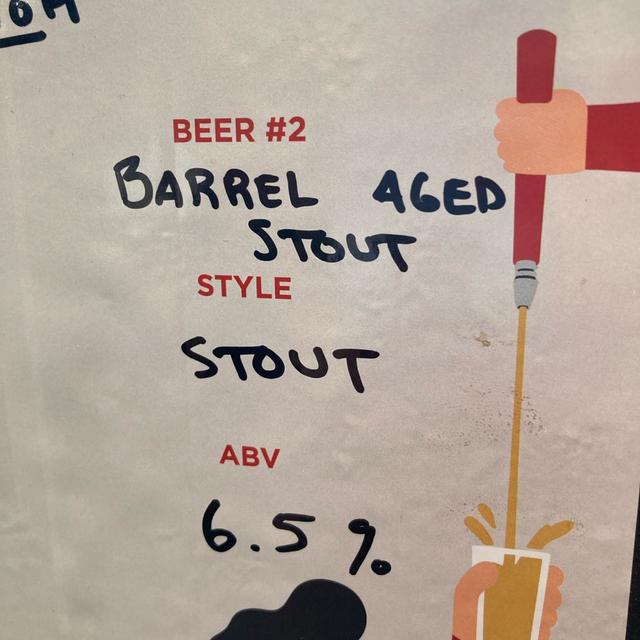 BEER #2
BARREL AGED
STOUT
STYLE
STOUT
ABV
6.5%